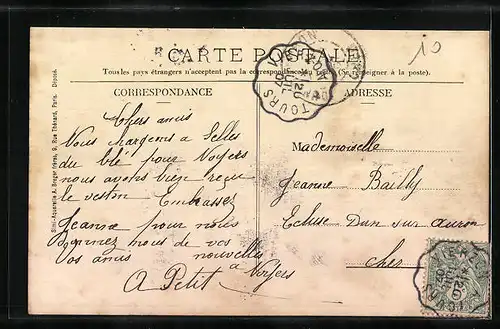 CARTE POSTALE
Tous les pays étrangers n'acceptent pas la correspondance au recto (Se renseigner à la poste).
CORRESPONDANCE
ADRESSE
Chers amis
Nous chargeons à Selles
du blé pour Noyers
nous avons bien reçu
le veston Embrassez
Jeanne pour nous
donnez nous de vos
nouvelles
Vos amis
A Petit à Noyers
Mademoiselle
Jeanne Bailly
Ecluse Dun sur auron
Cher
10
TOURS
Simi-Aquarelle A. Breger frères, 9, Rue Thénard, Paris. Déposé.